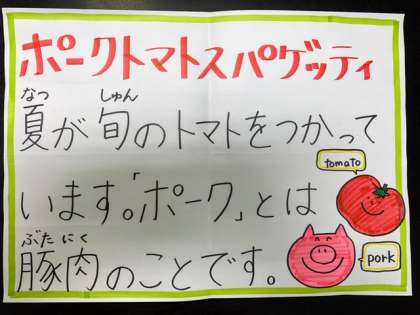 ポークトマトスパゲッティ
なつ しゅん
夏が旬のトマトをつかって
tomato
います。「ポーク」とは
ぶた にく
豚肉のことです。
pork